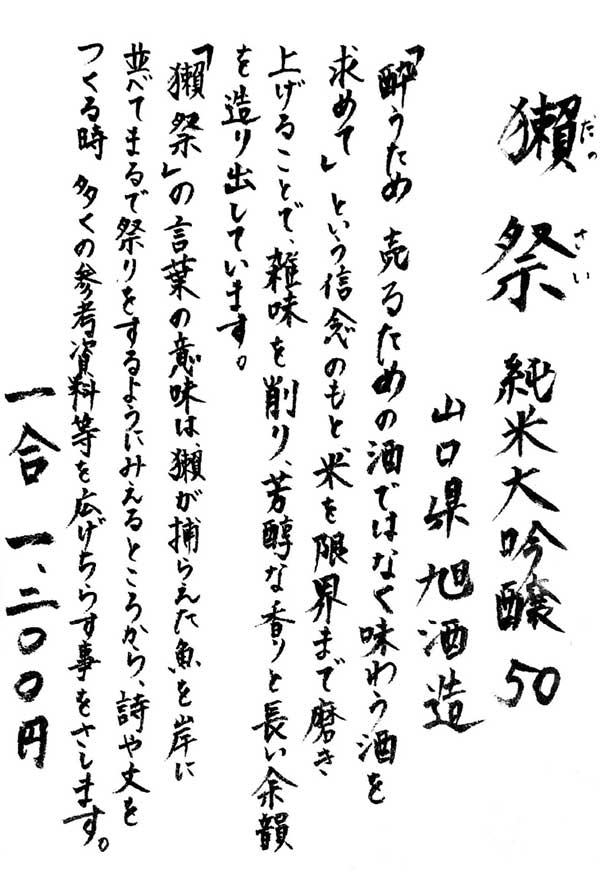 獺祭 純米大吟醸50
だっさい
山口県旭酒造
「酔うため 売るための酒ではなく味わう酒を
求めて」という信念のもと米を限界まで磨き
上げることで、雑味を削り、芳醇な香りと長い余韻
を造り出しています。
「獺祭」の言葉の意味は、獺が捕らえた魚を岸に
並べてまるで祭りをするようにみえるところから、詩や文を
つくる時 多くの参考資料等を広げちらす事をさします。
一合 一、二〇〇円